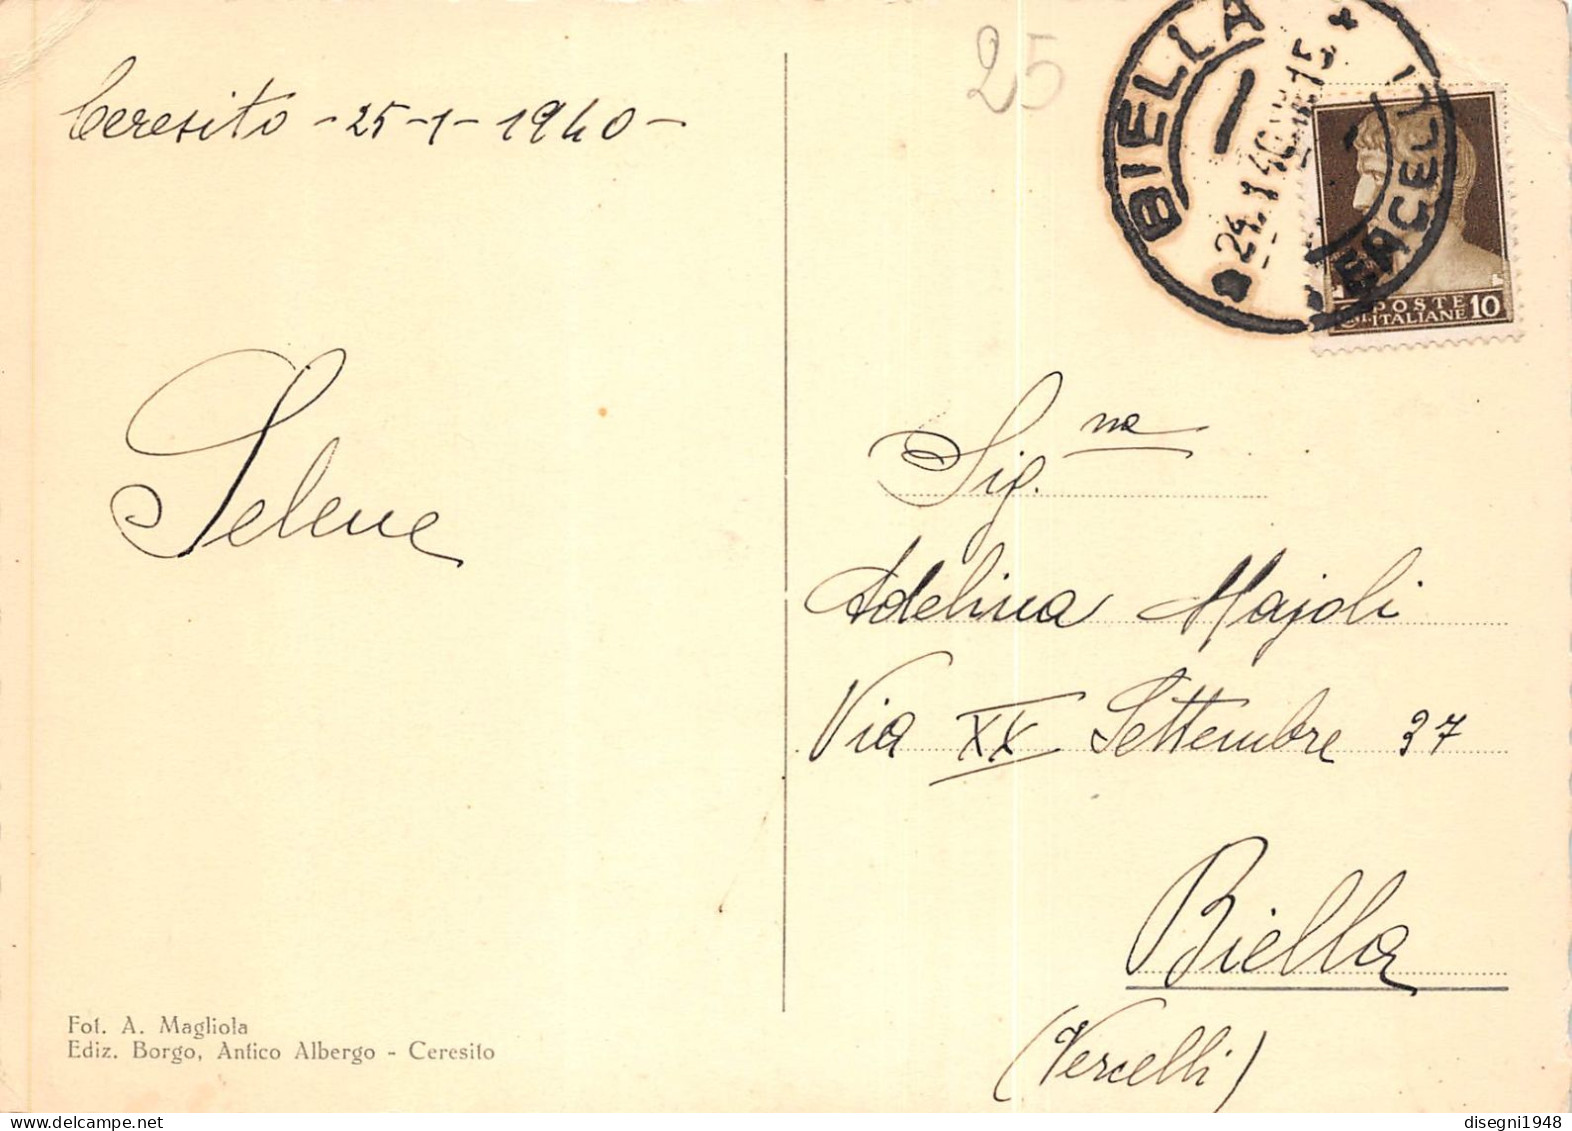 Ceresito - 25-1-1940-
25
BIELLA
24.1.40 15
VERCELLI
POSTE
ITALIANE 10
Selene
Sig.na
Adelina Majoli
Via XX Settembre 37
Biella
(Vercelli)
Fot. A. Magliola
Ediz. Borgo, Antico Albergo - Ceresito
disegni1948